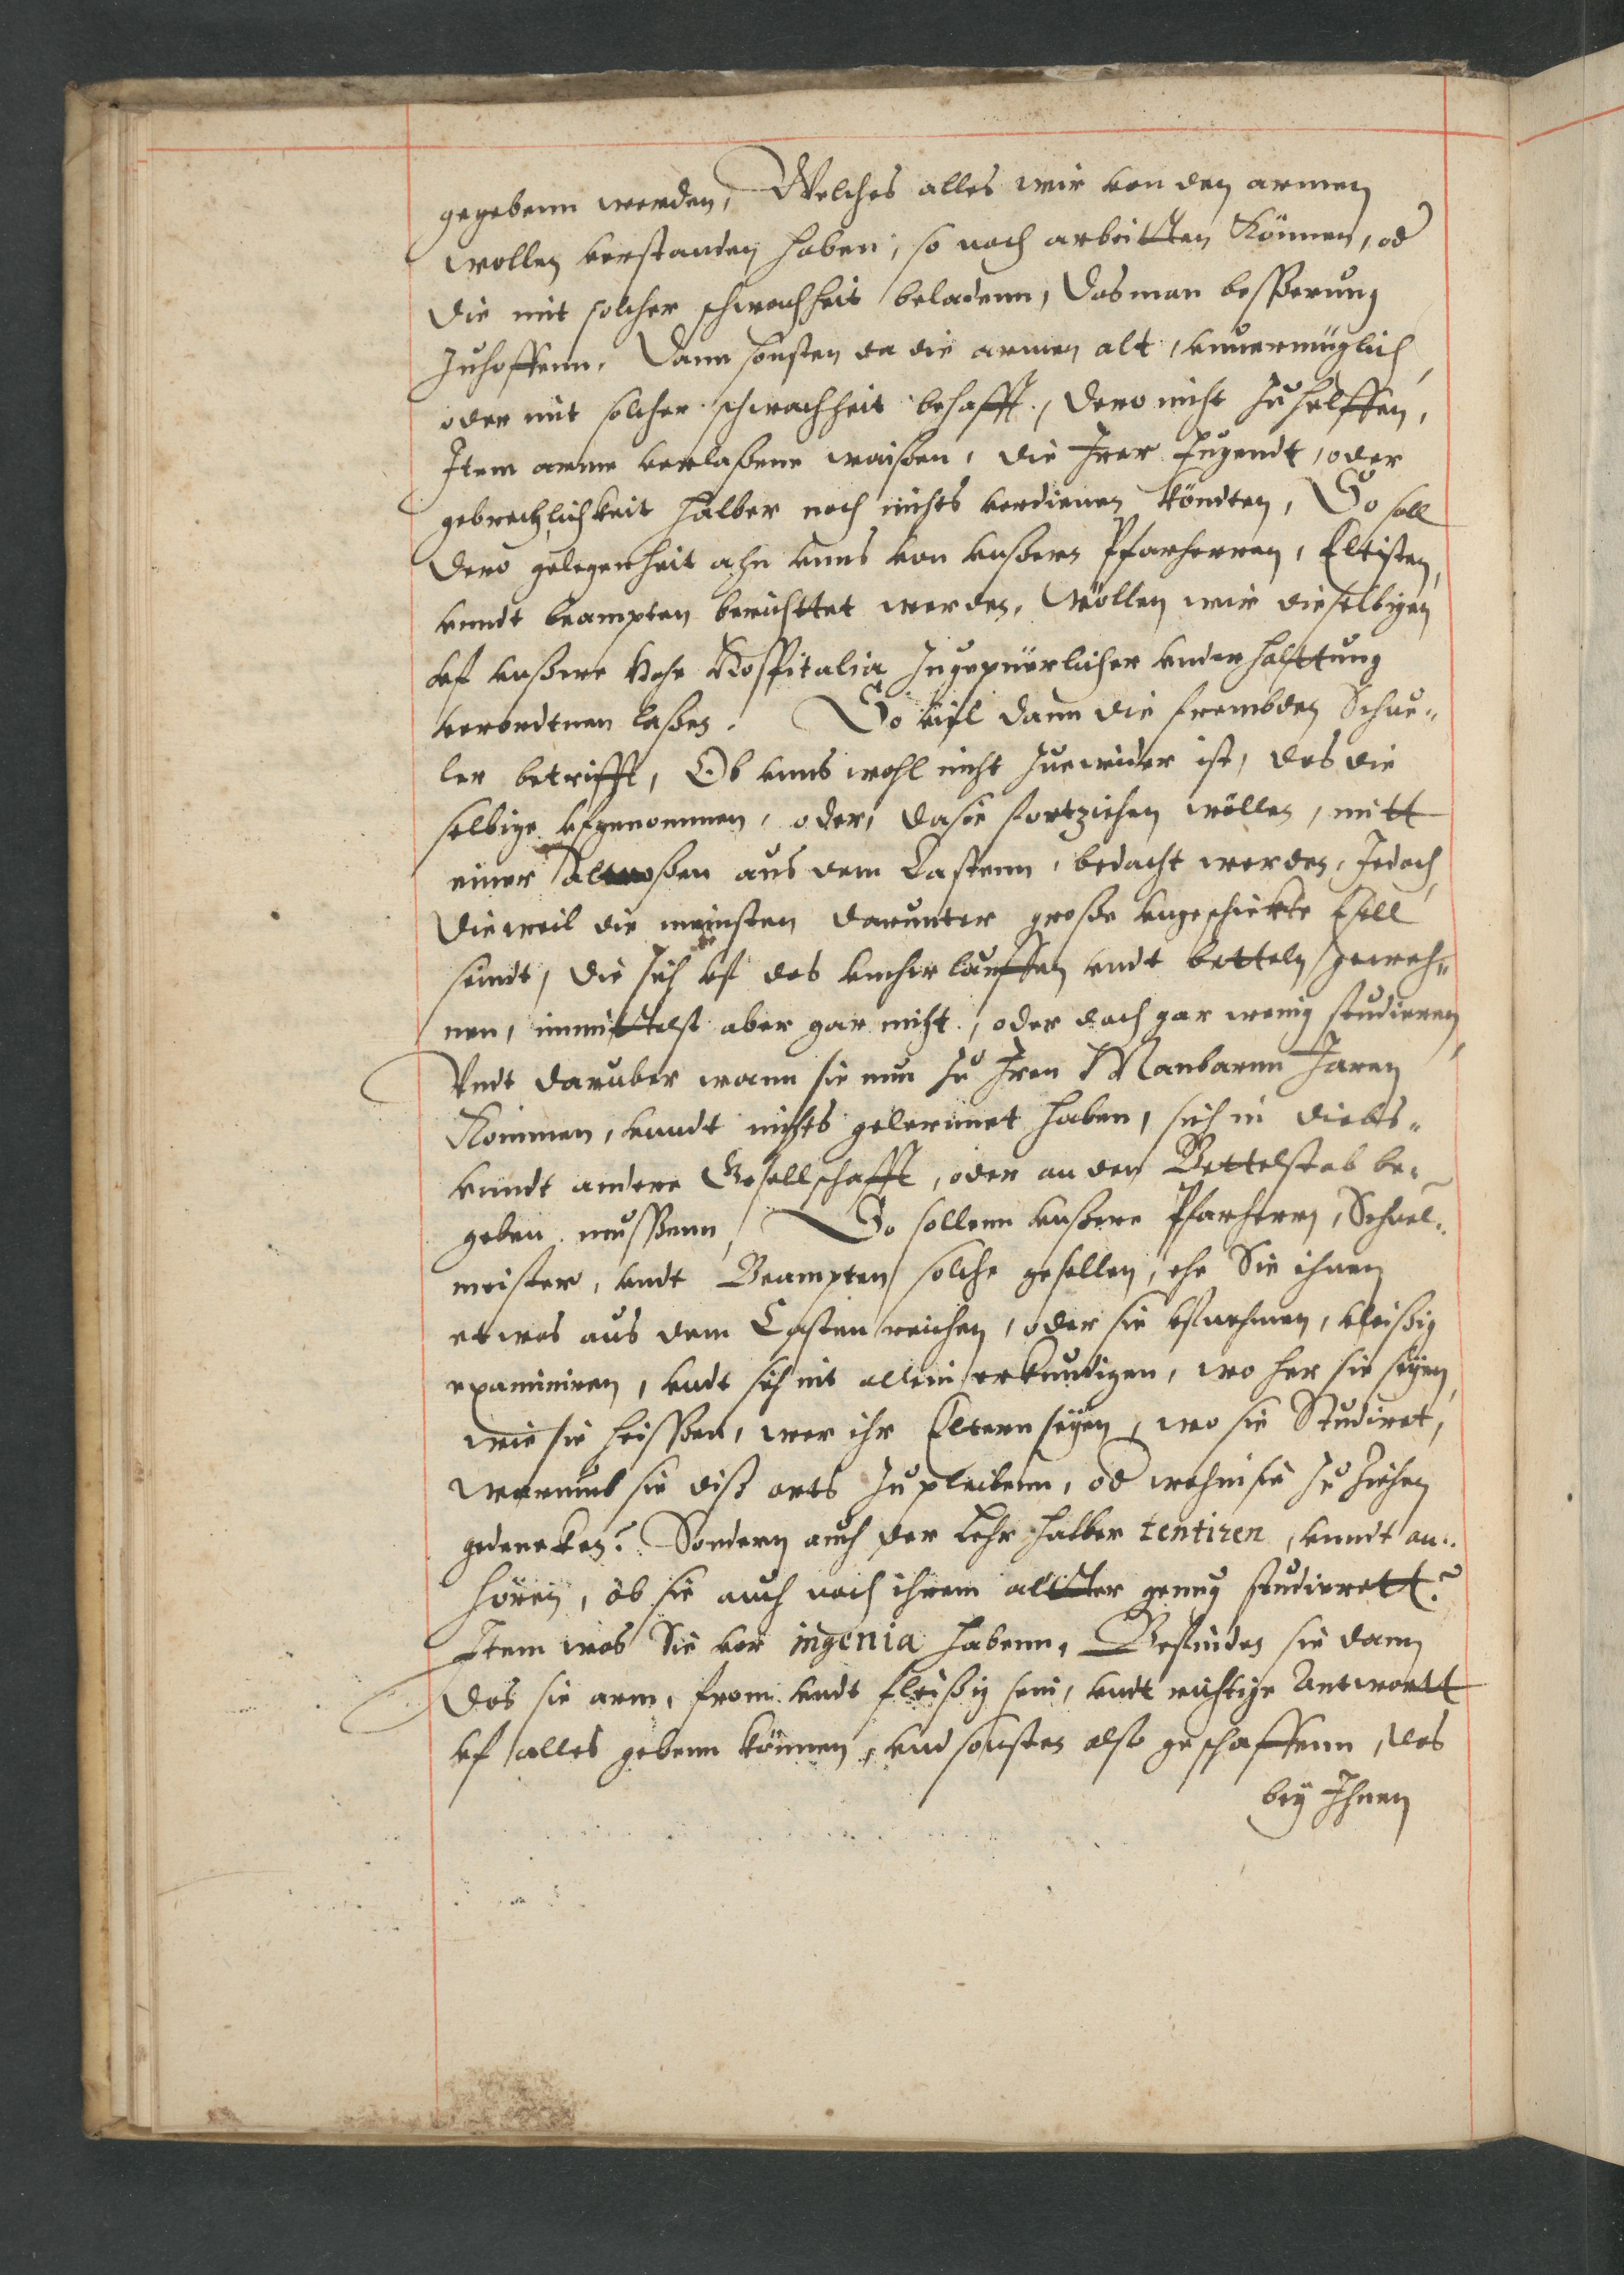 gegebenn werden, Welches alles wir von den armen
wollen verstanden haben, so noch arbeitten Können, od
die mit solcher schwachheit beladenn, das man besßerung
zuhoffenn. Dann sonsten da die armen alt, vnuermüglich
oder mit solcher schwachheit behafft, dero nicht zu helffen,
Item arme verlaßene waisen, die Irer Jugendt, oder
gebrechlichkeit halber noch nichts verdienen köndten, So soll
dero gelegenheit ahn vnns von vnßern Pfarherren, Eltisten,
vnndt beampten berichttet werden, Wöllen wir dieselbigen
vf vnßere Hohe Hospitalia zugepüerlicher vnderhalttung
verordtnen laßen. So viel dann die frembden Schue-
ler betrifft, Ob vnns wohl nicht zuewider ist, das die
selbige vfgenommen, oder, da sie fortziehen wöllen, mitt
einer almoßen aus dem Castenn, bedacht werden, Jedoch
dieweil die meinsten darunter große vngeschickte Esell
seindt, die sich vf das vmherlauffen vndt betteln geweh-
nen, inmittelst aber gar nicht, oder doch gar wenig studieren,
Vndt daruber wann sie nun zu Iren Manbarnn Jaren
Kommen, vnndt nichts gelernnet haben, sich in diebs-
vnndt andere Gesellschafft, oder an den Bettelstab be-
geben musßenn, So sollenn vnßere Pfarherrn, Schuel-
meister, vndt Beampten solche gesellen, ehe Sie ihnen
etwas aus dem Casten reichen, oder sie vfnehmen, vleißig
examiniren, vndt sich nit allein erkundigen, wo her sie seyen,
wie sie heissßen, wer ihr Eltern seyen, wo sie Studiret,
warumb sie diß orts zu pleibenn, od wohin sie zu ziehen
gedencken? Sondern auch der Lehr halber tentiren, vnndt an-
hören, ob sie auch nach ihrem altter genug studierett?
Item was Sie vor ingenia habenn, Befinden sie dann
das sie arm, from vndt fleißig sein, vndt richtige Antwortt
vf alles gebenn können, vnd sonsten also geschaffenn, das
bey Ihnen